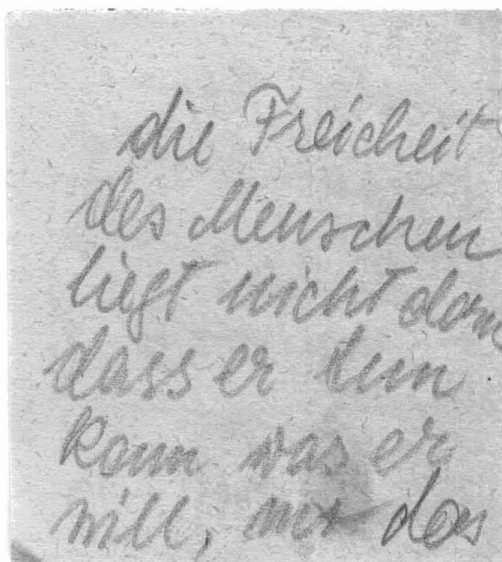 die Freicheit
des Menschen
liegt nicht dari
dass er tun
kann was er
will, das